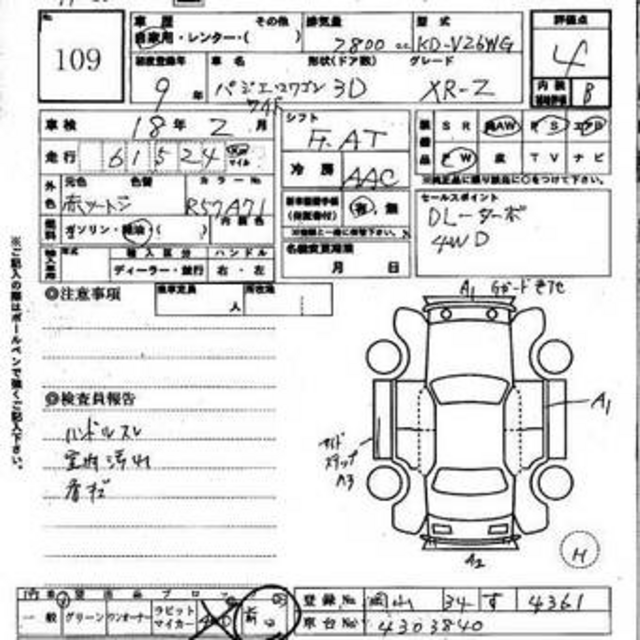 No.
109
車歴
その他
自家用・レンター・( )
排気量
2800 cc
型式
KD-V26WG
評価点
4
初度登録年
9年
車名
パジェロワゴン
ワイド
形状(ドア数)
3D
グレード
XR-Z
内装
B
車検
18年 2月
シフト
F.AT
SR
AW
PS
エアB
走行
61524
マイル
冷房
AAC
PW
革
TV
ナビ
※純正品に限り該品に○をつけて下さい。
外色
元色
色替
カラーNo
赤ツートン
R57A71
有・無
セールスポイント
DLターボ
4WD
燃料
ガソリン・軽油・( )
内装色
輸入車用
年式
輸入区分
ハンドル
ディーラー・並行
右・左
名義変更期限
月 日
◎注意事項
乗車定員
人
所在地
※ご記入の際はボールペンで強くご記入下さい。
◎検査員報告
ハンドルスレ
室内汚れ
A1 Gガードキズ
A1
サイド
ステップ
A2
H
一般
グリーン
ワンオーナー
ラビット
マイカー
登録No.
岡山 34 す 4361
車台No.
4303840